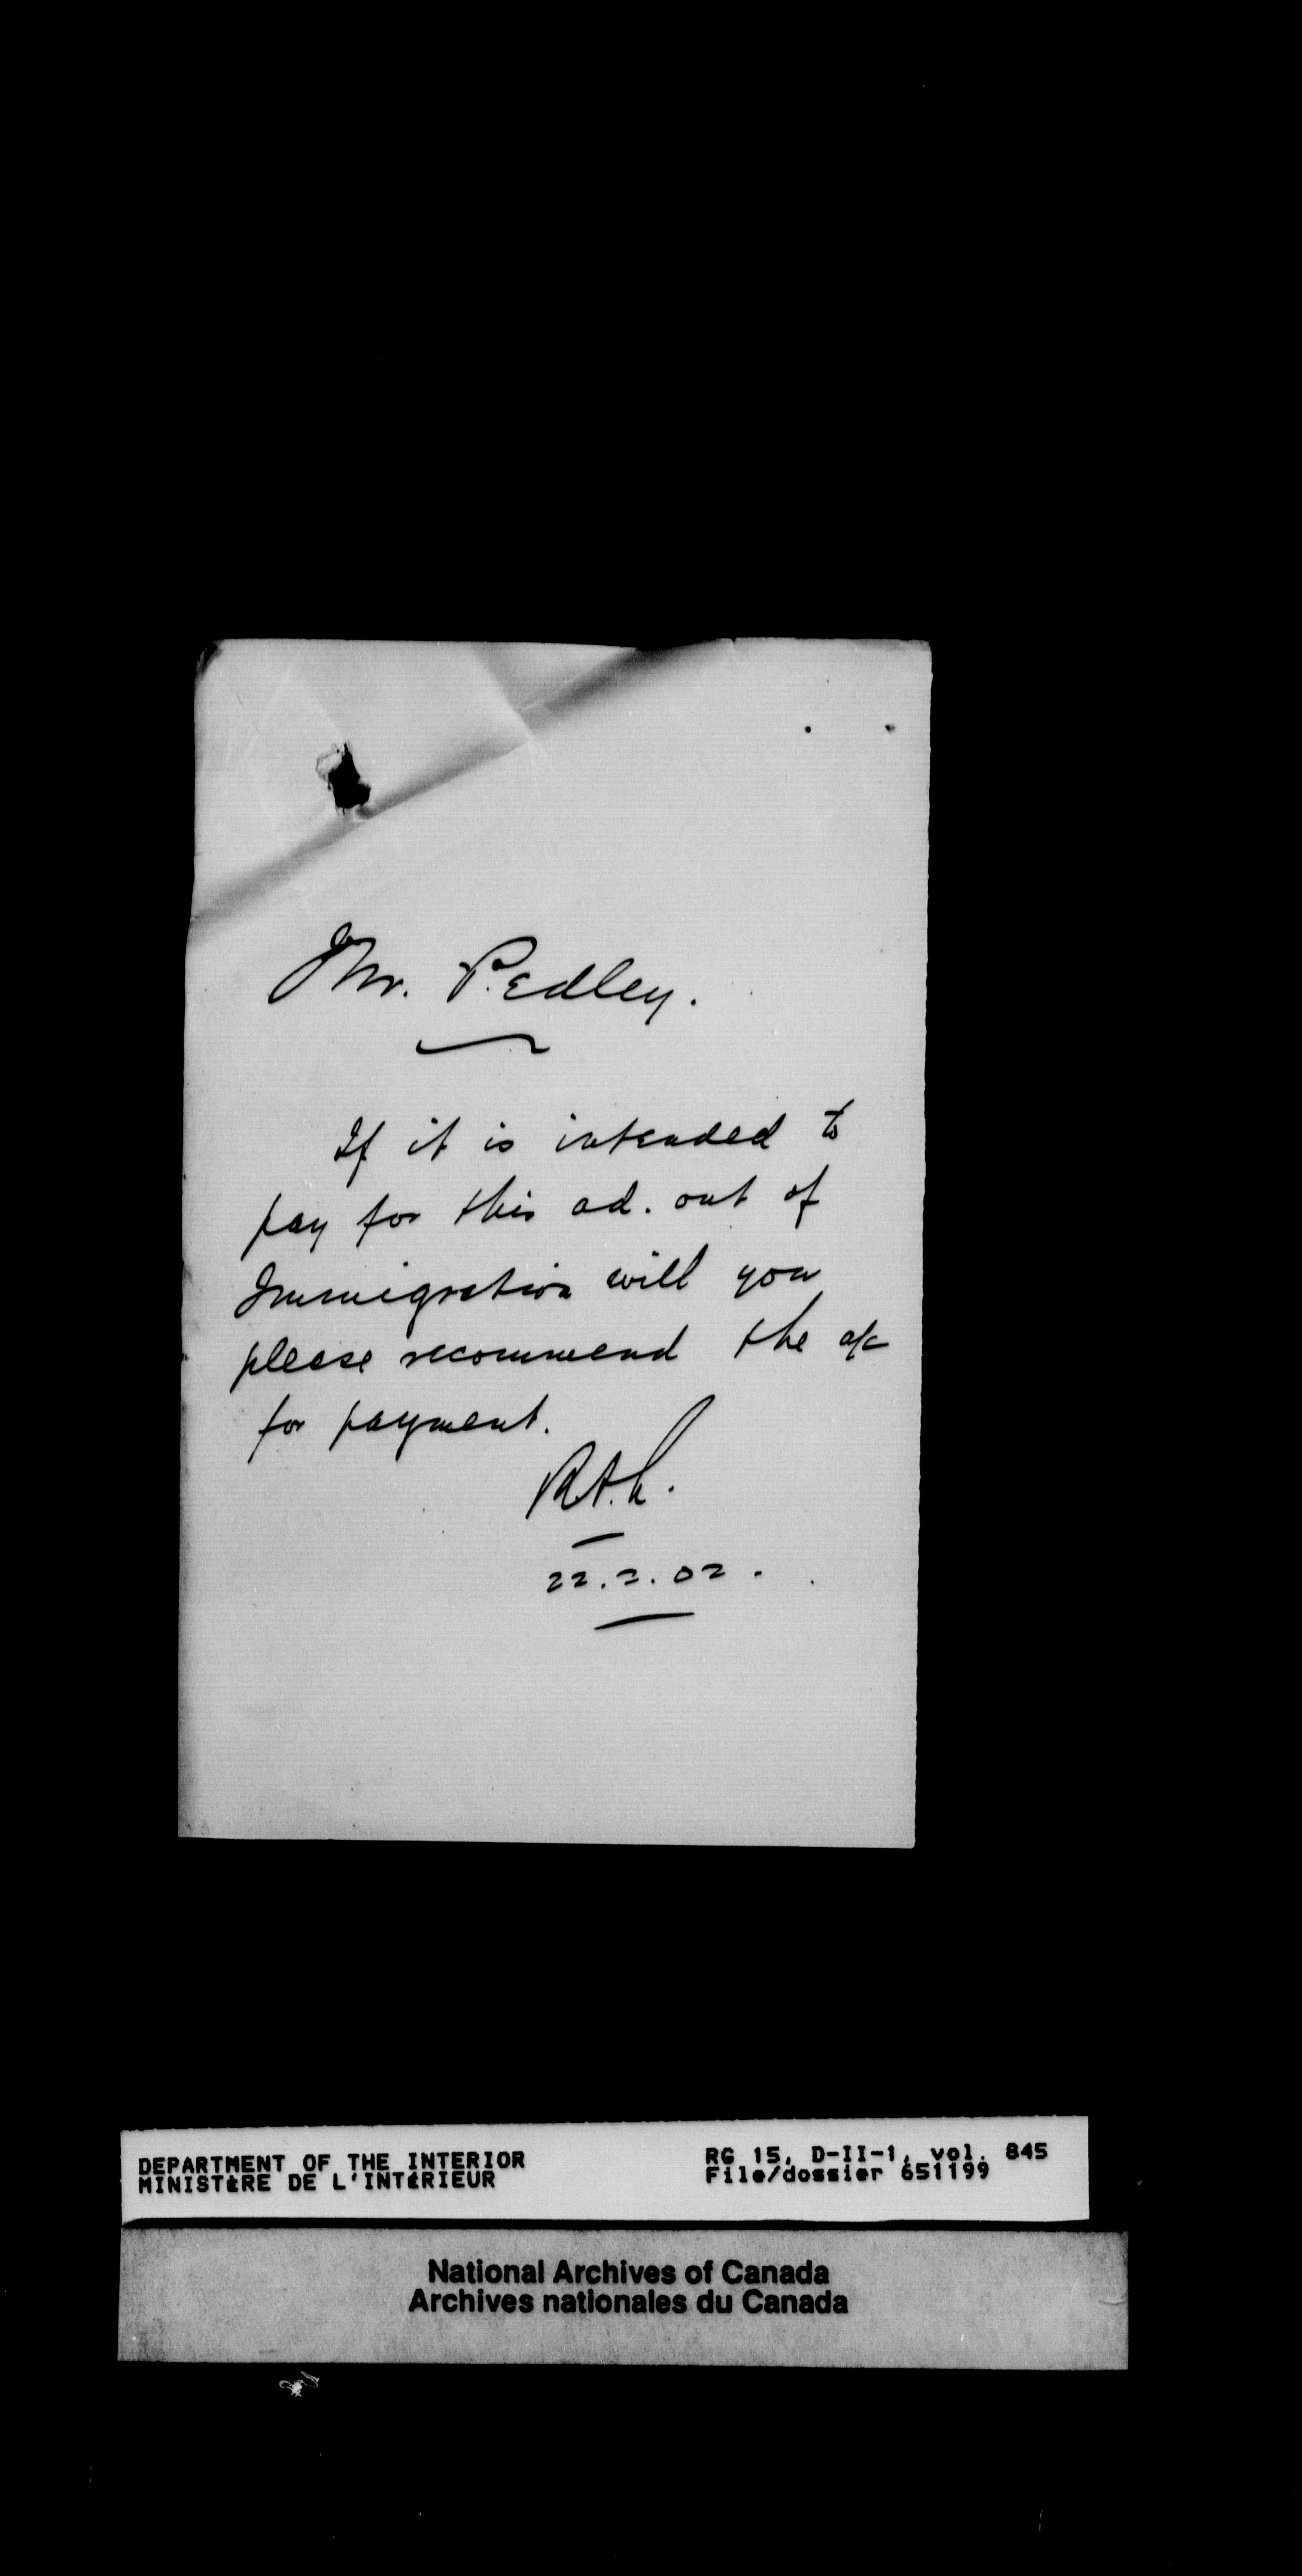 Mr. Pedley.
If it is intended to
pay for this ad. out of
Immigration will you
please recommend the a/c
for payment.
22.2.02.
DEPARTMENT OF THE INTERIOR
MINISTÈRE DE L'INTÉRIEUR
RG 15, D-II-1, vol. 845
File/dossier 651199
National Archives of Canada
Archives nationales du Canada